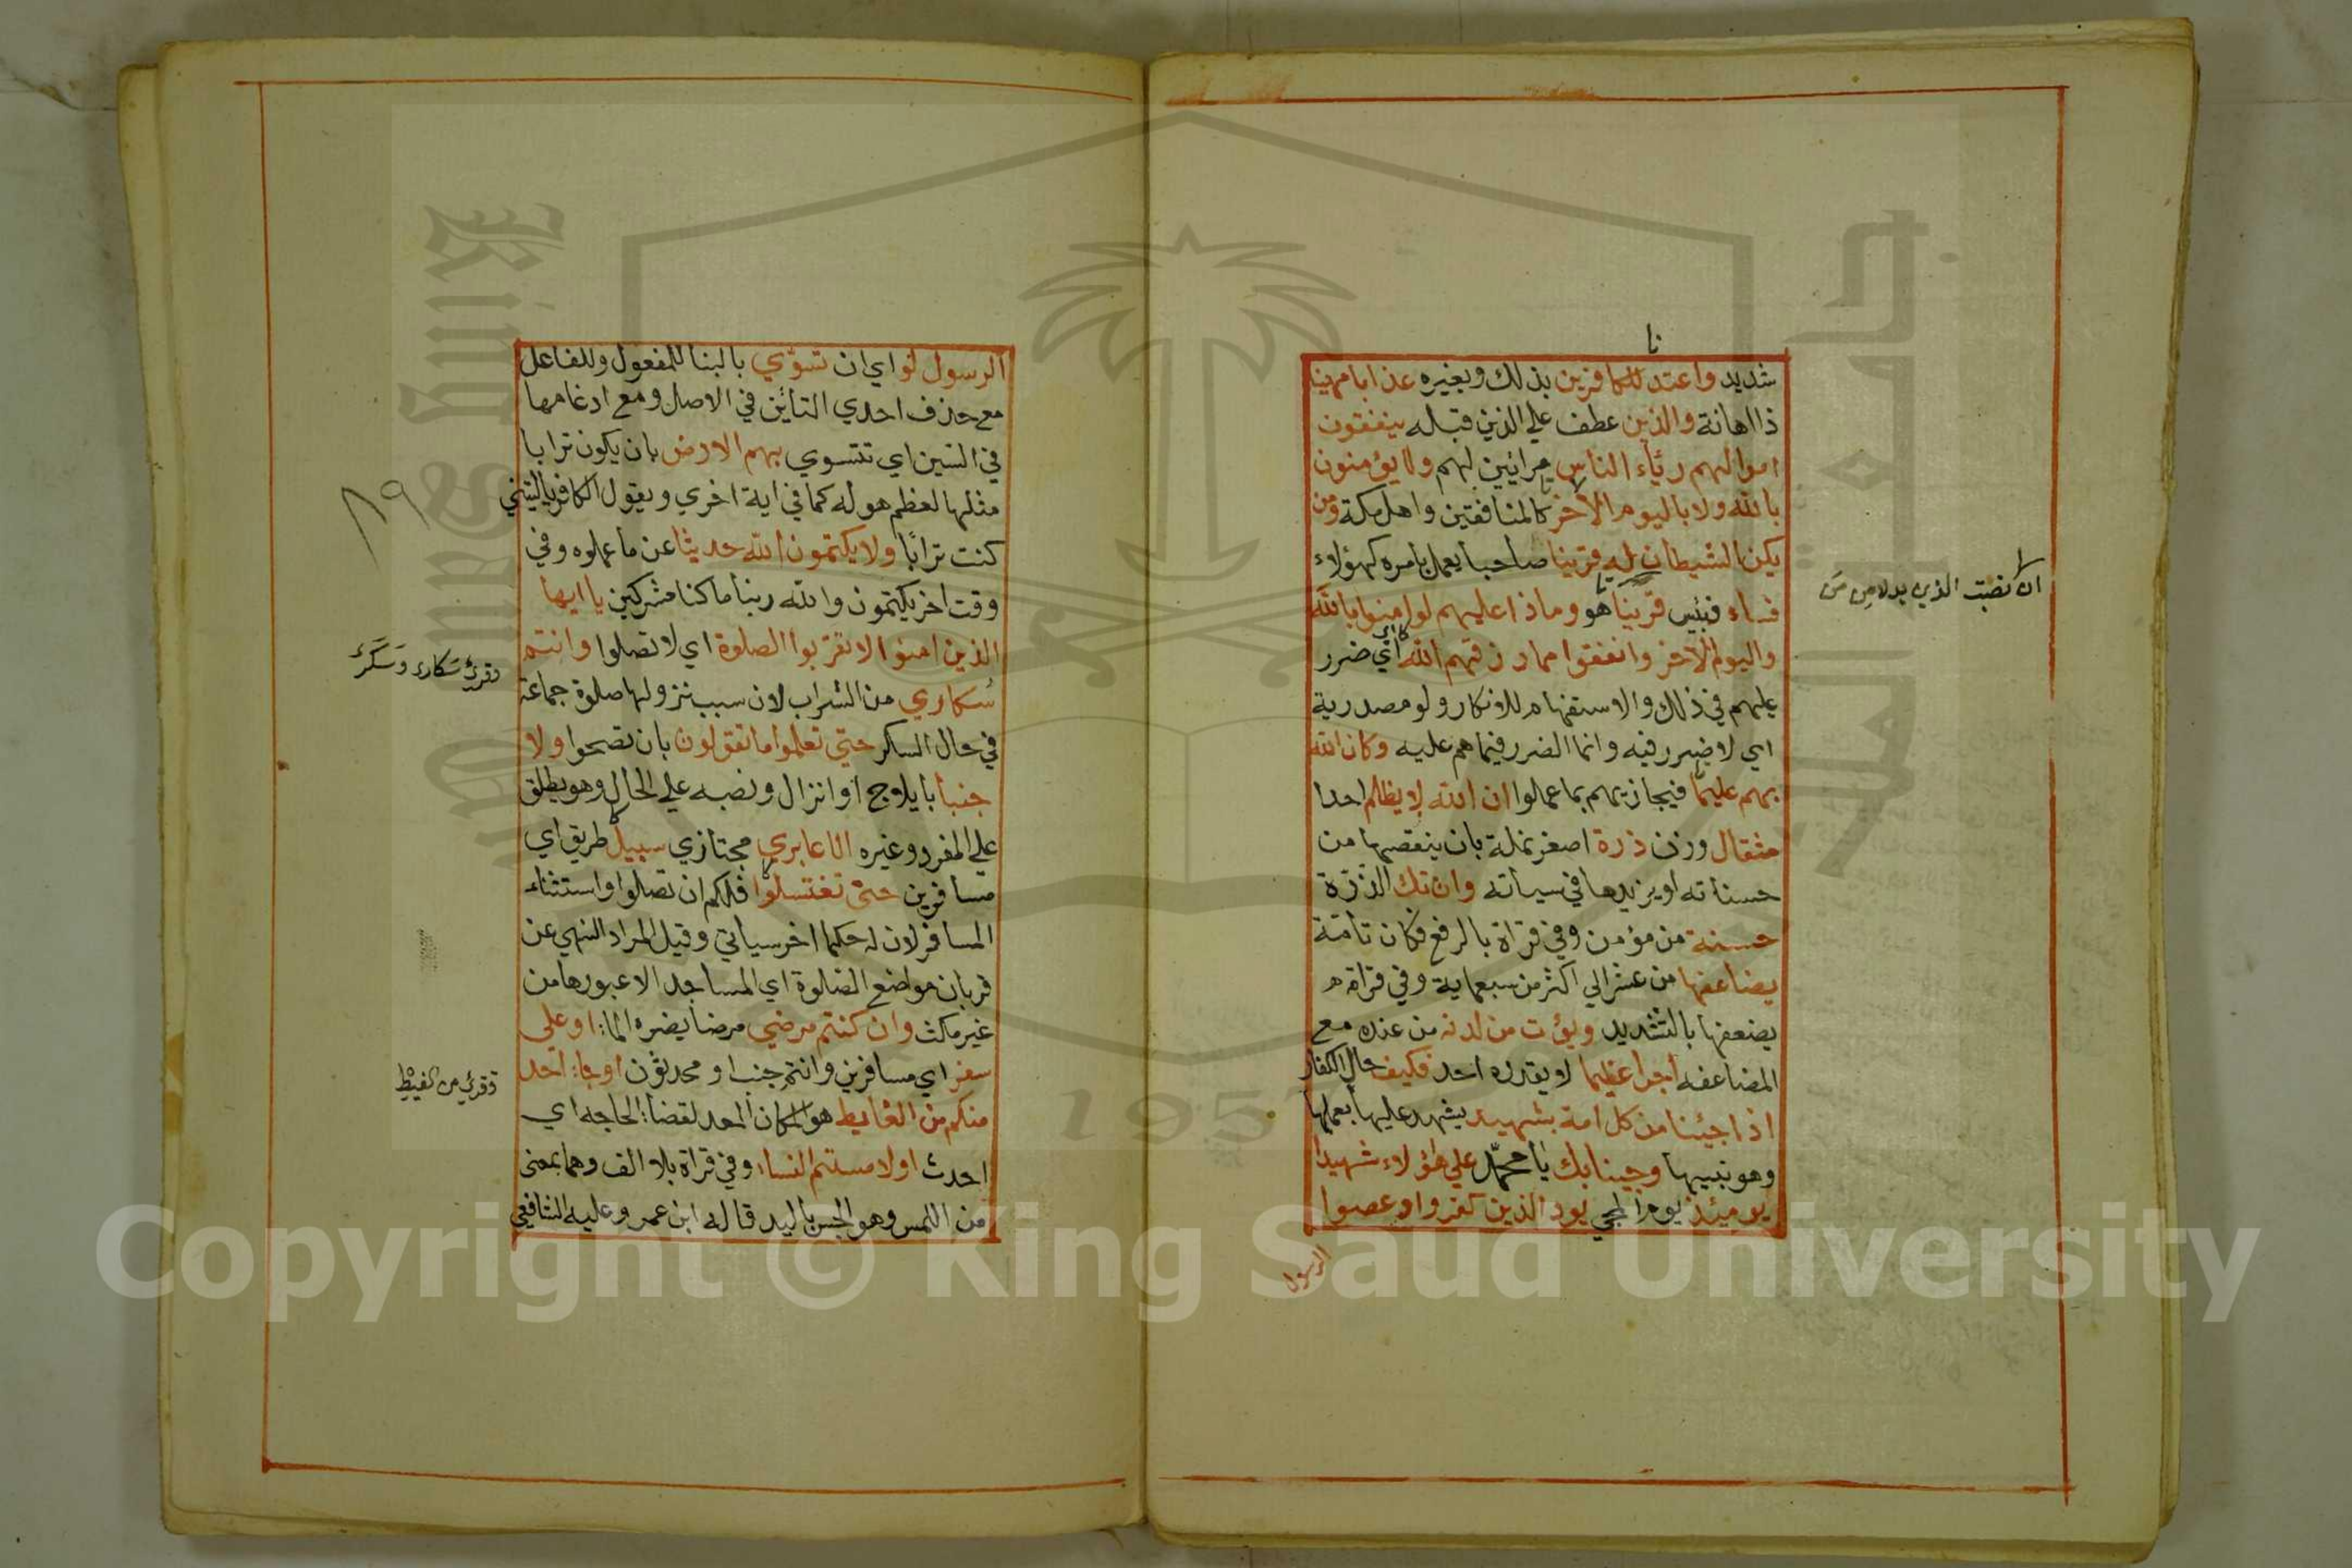 نا
شديد واعتدنا للكافرين بذلك وبغيره عذابا مهينا
ذا اهانة والذين عطف علي الذين قبله ينفقون
اموالهم رئاء الناس مرائين لهم ولا يؤمنون
بالله ولا باليوم الاخر كالمنافقين واهل مكة ومن
يكن الشيطان له قرينا صاحبا يعمل بامره كهؤلاء
فساء فبئس قرينا هو وماذا عليهم لو امنوا بالله
واليوم الاخر وانفقوا مما رزقهم الله اي ضرر
عليهم في ذلك والاستفهام للانكار ولو مصدرية
اي لا ضرر فيه وانما الضرر فيما هم عليه وكان الله
بهم عليما فيجازيهم بما عملوا ان الله لا يظلم احدا
مثقال وزن ذرة اصغر نملة بان ينقصها من
حسناته او يزيدها في سيأته وان تك الذرة
حسنة من مؤمن وفي قراة بالرفع فكان تامة
يضاعفها من عشر الي اكثر من سبعماية وفي قراة
يضعفها بالتشديد ويؤت من لدنه من عنده مع
المضاعفه اجرا عظيما لا يقدره احد فكيف حال الكفار
اذا جئنا من كل امة بشهيد يشهد عليها بعملها
وهو نبيها وجينا بك يا محمد علي هؤلاء شهيدا
يومئذ يوم المجي يود الذين كفروا وعصوا
الرسول
ان نصبت الذي بدلا من من
الرسول لو اي ان تسوي بالبنا للمفعول وللفاعل
مع حذف احدي التائين في الاصل ومع ادغامها
في السين اي تتسوي بهم الارض بان يكون ترابا
مثلها لعظم هوله كما في اية اخري ويقول الكافر ياليتني
كنت ترابا ولا يكتمون الله حديثا عن ما عملوه وفي
وقت اخر يكتمون والله ربنا ما كنا مشركين يا ايها
الذين امنوا لا تقربوا الصلوة اي لا تصلوا وانتم
سكاري من الشراب لان سبب نزولها صلوة جماعة
في حال السكر حتي تعلموا ما تقولون بان تصحوا ولا
جنبا بايلاج او انزال ونصبه علي الحال وهو يطلق
علي المفرد وغيره الا عابري مجتازي سبيل طريق اي
مسافرين حتي تغتسلوا فلكم ان تصلوا واستثناء
المسافر لان له حكما اخر سيأتي وقيل المراد النهي عن
قربان مواضع الصلوة اي المساجد الا عبورها من
غير مكث وان كنتم مرضي مرضا يضره الما او علي
سفر اي مسافرين وانتم جنب او محدثون او جا احد
منكم من الغايط هو المكان المعد لقضا الحاجه اي
احدث او لامستم النساء وفي قراة بلا الف وهما بمعني
من اللمس وهو الجس باليد قاله ابن عمر وعليه الشافعي
٨٩
وقرئ سكاري وسكري
وقرئ من الغيط
King Saud University
1957
Copyright © King Saud University